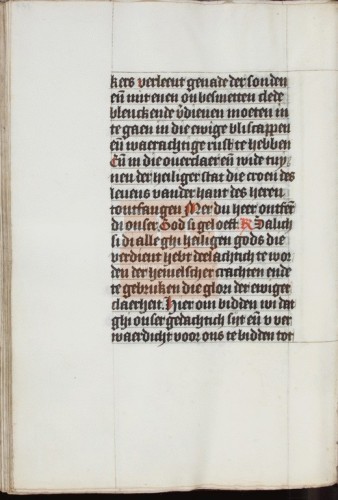 kers verleent genade der sonden
eñ mit enen onbesmetten clede
blenckende v̄dienen moeten in
te gaen in die ewige bliscappen
eñ waerachtige rust te hebben
Eñ in die overclaer eñ wide tuy
nen der heiliger stat die croen des
levens vander hant des heren
tontfangen Mer du heer ontfer
di onser God si geloeft R Salich
si di alle ghi heiligen gods die
verdient hebt deelachtich te wor
den der hemelscher crachten ende
te gebruken die glori der ewiger
claerheit. Hier om bidden wi dat
ghi onser gedachtich sijt eñ v ver
waerdicht voor ons te bidden tot